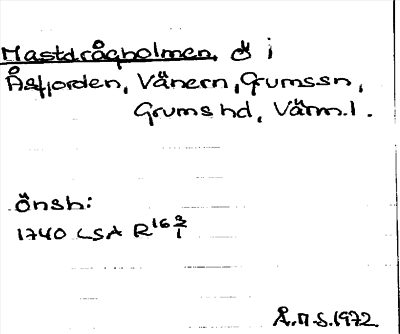 Mastdrågholmen, ö i
Åsfjorden, Vänern, Grums sn,
Grums hd, Värml.
Önsh:
1740 LSA R16 2/1
Å.M.S. 1972